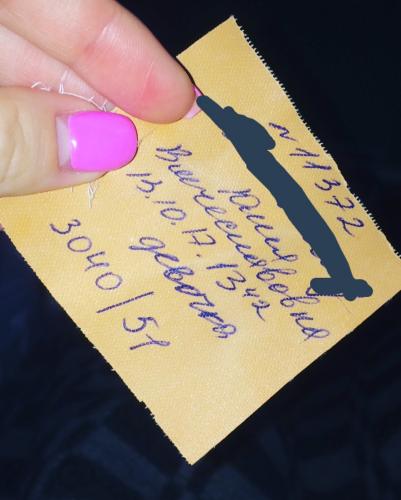 п 11372
Юлия
Вячеславовна
13.10.17. 13 42
девочка
3040/51